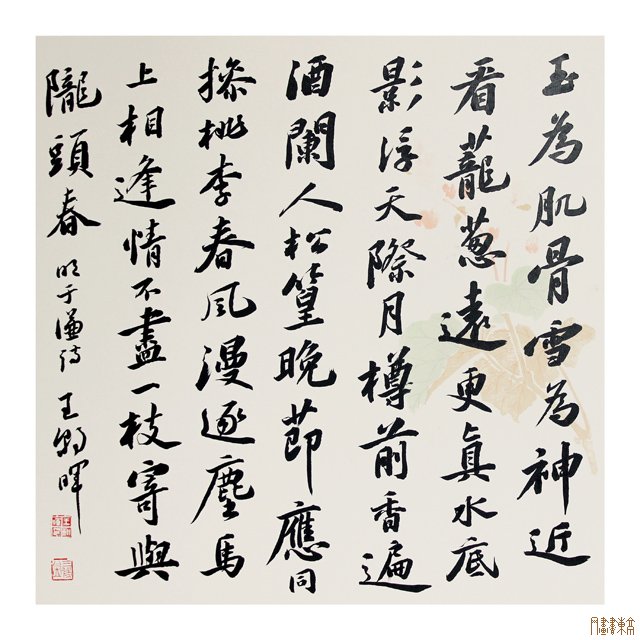 玉為肌骨雪為神近
看蘢葱遠更真水底
影浮天際月樽前香遍
酒闌人松篁晚節應同
操桃李春風漫逐塵馬
上相逢情不盡一枝寄與
隴頭春 明于謙詩 王朝暉